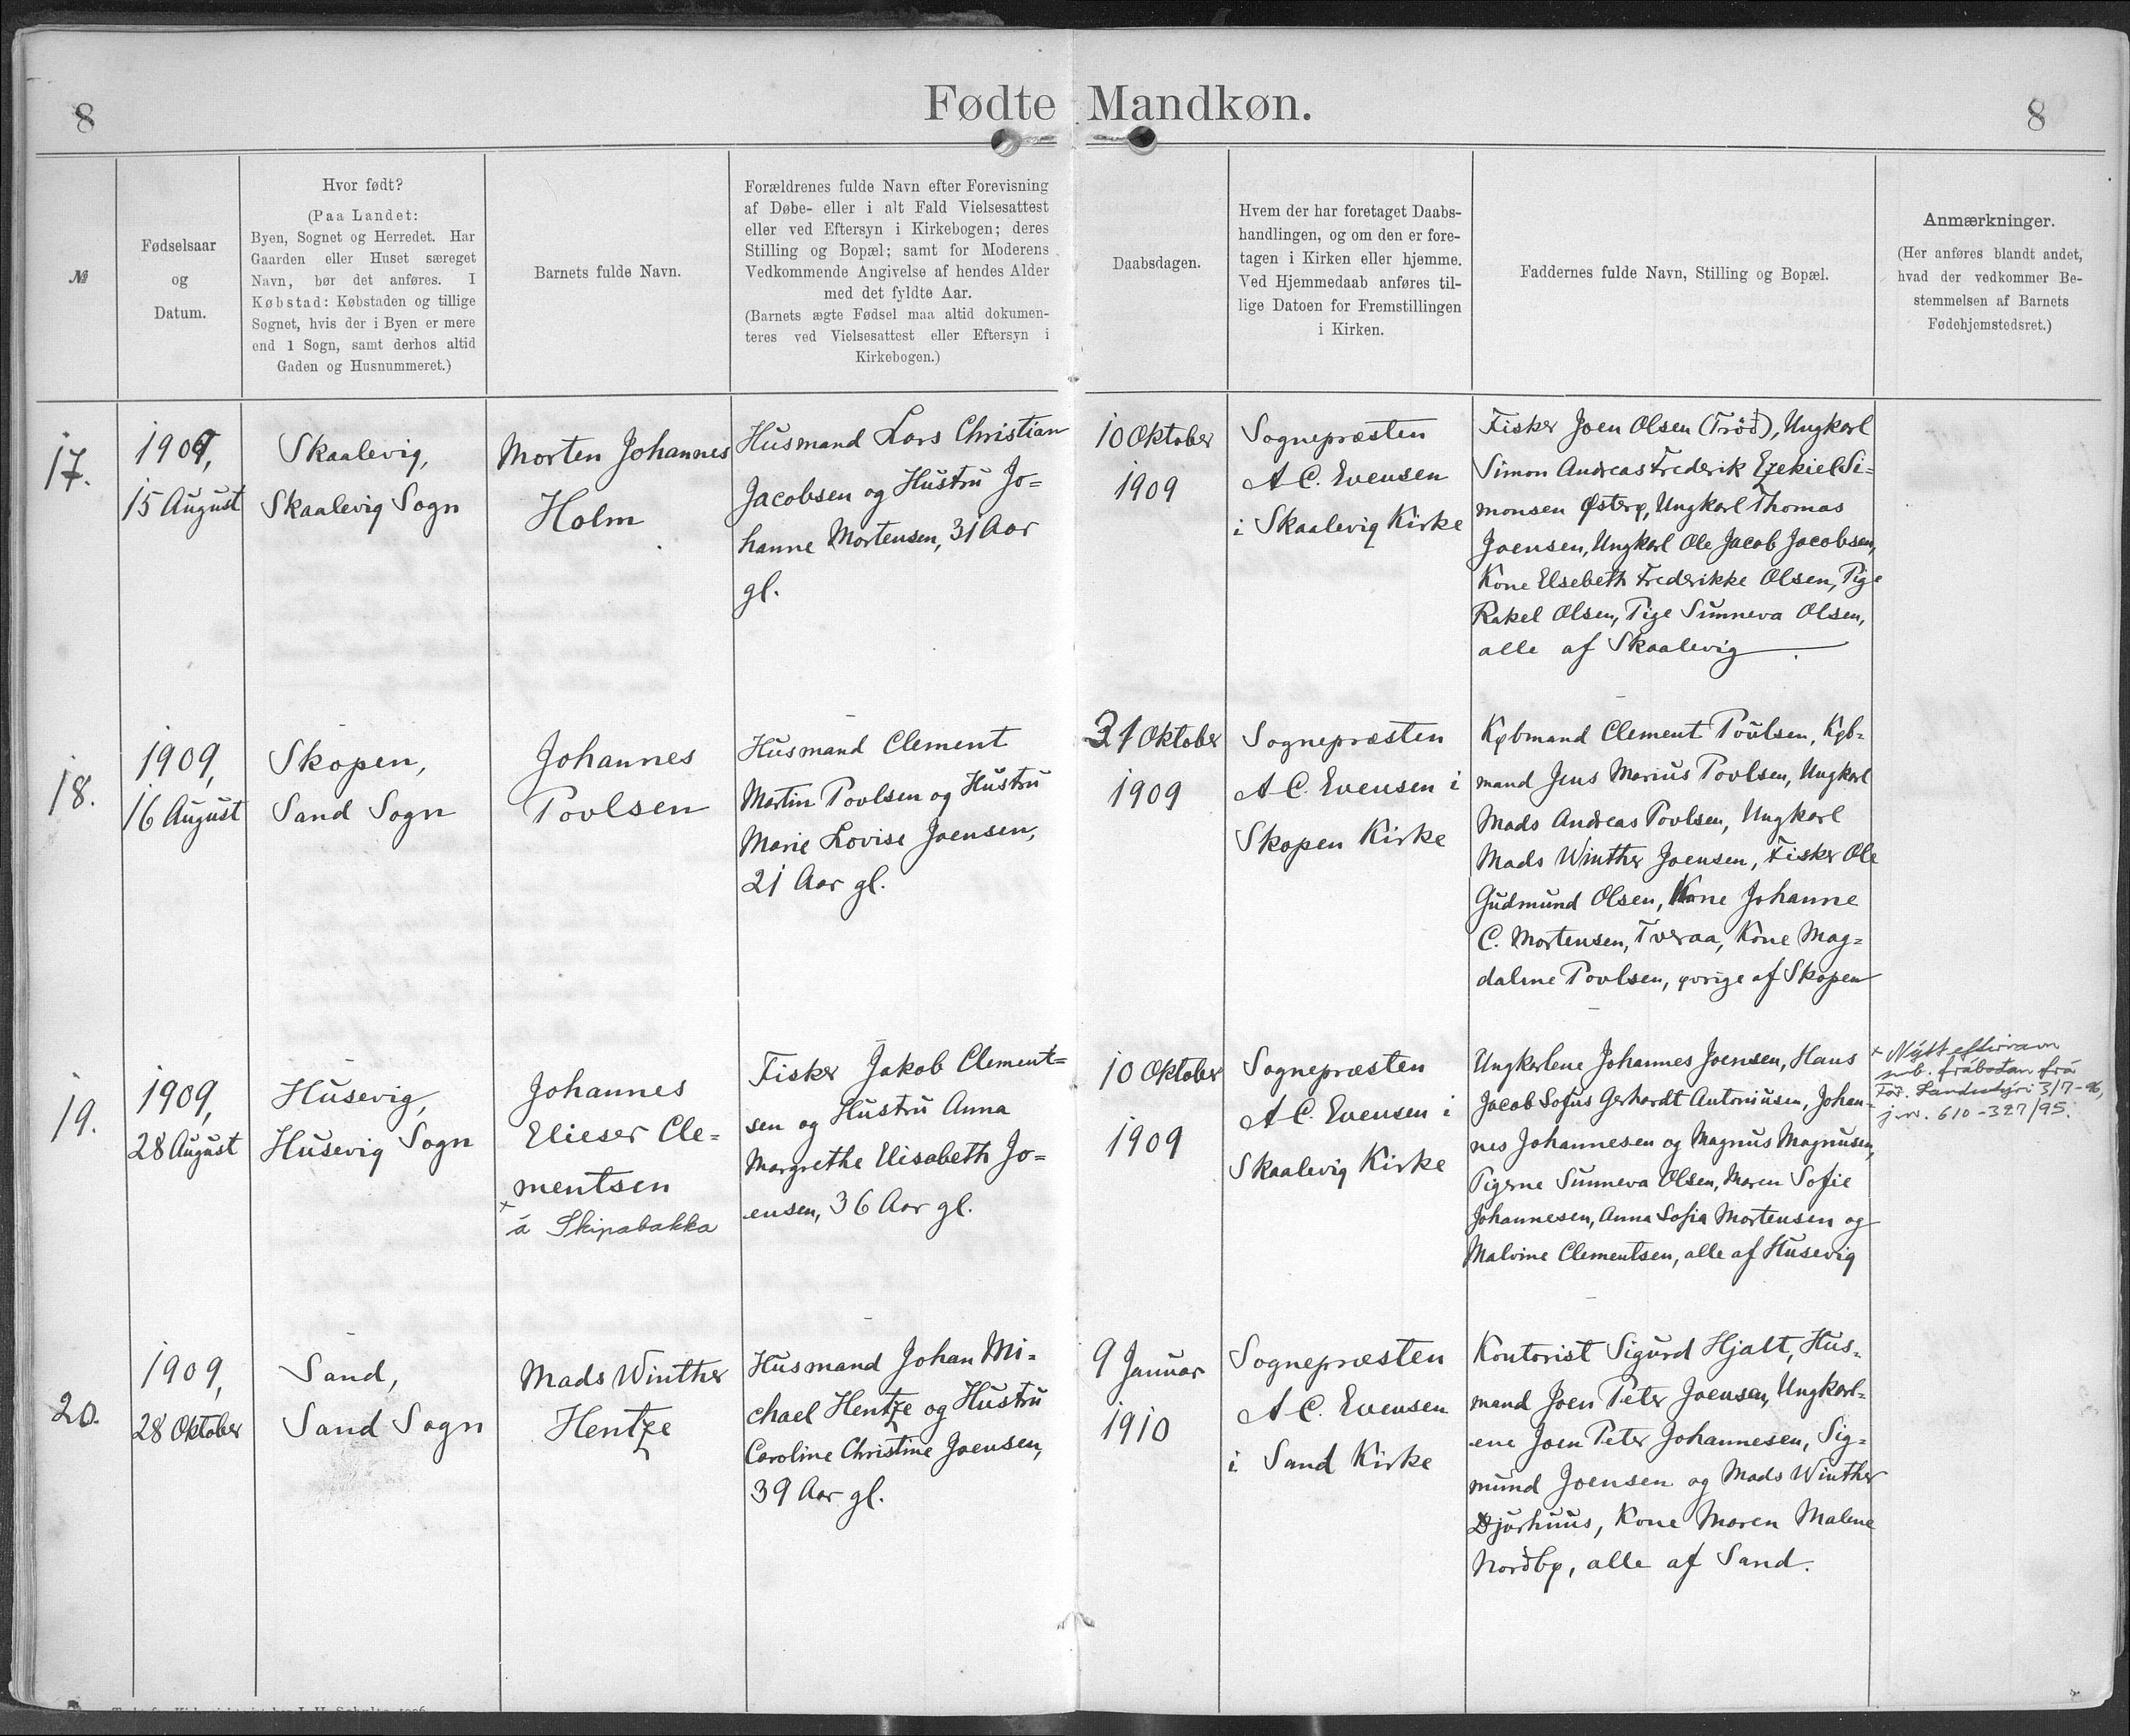 8
Fødte Mandkøn.
8
№
Fødselsaar
og
Datum.
Hvor født?
(Paa Landet:
Byen, Sognet og Herredet. Har
Gaarden eller Huset særeget
Navn, bør det anføres. I
Købstad: Købstaden og tillige
Sognet, hvis der i Byen er mere
end 1 Sogn, samt derhos altid
Gaden og Husnummeret.)
Barnets fulde Navn.
Forældrenes fulde Navn efter Forevisning
af Døbe- eller i alt Fald Vielsesattest
eller ved Eftersyn i Kirkebogen; deres
Stilling og Bopæl; samt for Moderens
Vedkommende Angivelse af hendes Alder
med det fyldte Aar.
(Barnets ægte Fødsel maa altid dokumen-
teres ved Vielsesattest eller Eftersyn i
Kirkebogen.)
Daabsdagen.
Hvem der har foretaget Daabs-
handlingen, og om den er fore-
tagen i Kirken eller hjemme.
Ved Hjemmedaab anføres til-
lige Datoen for Fremstillingen
i Kirken.
Faddernes fulde Navn, Stilling og Bopæl.
Anmærkninger.
(Her anføres blandt andet,
hvad der vedkommer Be-
stemmelsen af Barnets
Fødehjemstedsret.)
17.
1909,
15 August
Skaalevig,
Skaalevig Sogn
Morten Johannes
Holm
Husmand Lars Christian
Jacobsen og Hustru Jo=
hanne Mortensen, 31 Aar
gl.
10 Oktober
1909
Sognepræsten
A C. Evensen
i Skaalevig Kirke
Fisker Joen Olsen (Tröð), Ungkarl
Simon Andreas Frederik Ezekiel Si=
monsen Østerø, Ungkarl Thomas
Joensen, Ungkarl Ole Jacob Jacobsen,
Kone Elsebeth Frederikke Olsen, Pige
Rakel Olsen, Pige Sunneva Olsen,
alle af Skaalevig
18.
1909,
16 August
Skopen,
Sand Sogn
Johannes
Povlsen
Husmand Clement
Martin Povlsen og Hustru
Marie Lovise Joensen,
21 Aar gl.
31 Oktober
1909
Sognepræsten
A C. Evensen i
Skopen Kirke
Købmand Clement Poulsen, Køb=
mand Jens Marius Povlsen, Ungkarl
Mads Andreas Povlsen, Ungkarl
Mads Winther Joensen, Fisker Ole
Gudmund Olsen, Kone Johanne
C. Mortensen, Tveraa, Kone Mag=
dalene Povlsen, øvrige af Skopen
19.
1909,
28 August
Husevig,
Husevig Sogn
Johannes
Elieser Cle=
mentsen
x á Skipabakka
Fisker Jakob Clement=
sen og Hustru Anna
Margrethe Elisabeth Jo=
ensen, 36 Aar gl.
10 Oktober
1909
Sognepræsten
A C. Evensen i
Skaalevig Kirke
Ungkarlene Johannes Joensen, Hans
Jacob Sofus Gerhardt Antoniusen, Johan=
nes Johannesen og Magnus Magnusen,
Pigerne Sunneva Olsen, Maren Sofie
Johannesen, Anna Sofia Mortensen og
Malvine Clementsen, alle af Husevig
x Nýtt eftirnavn
smb. fráboðan frá
Før. Landsstýri 3/7-96,
j.nr. 610-327/95.
20.
1909,
28 Oktober
Sand,
Sand Sogn
Mads Winther
Hentze
Husmand Johan Mi=
chael Hentze og Hustru
Caroline Christine Joensen,
39 Aar gl.
9 Januar
1910
Sognepræsten
A C. Evensen
i Sand Kirke
Kontorist Sigurd Hjalt, Hus=
mand Joen Peter Joensen, Ungkarl=
ene Joen Peter Johannesen, Sig=
mund Joensen og Mads Winther
Djurhuus, Kone Maren Malene
Norðbø, alle af Sand.